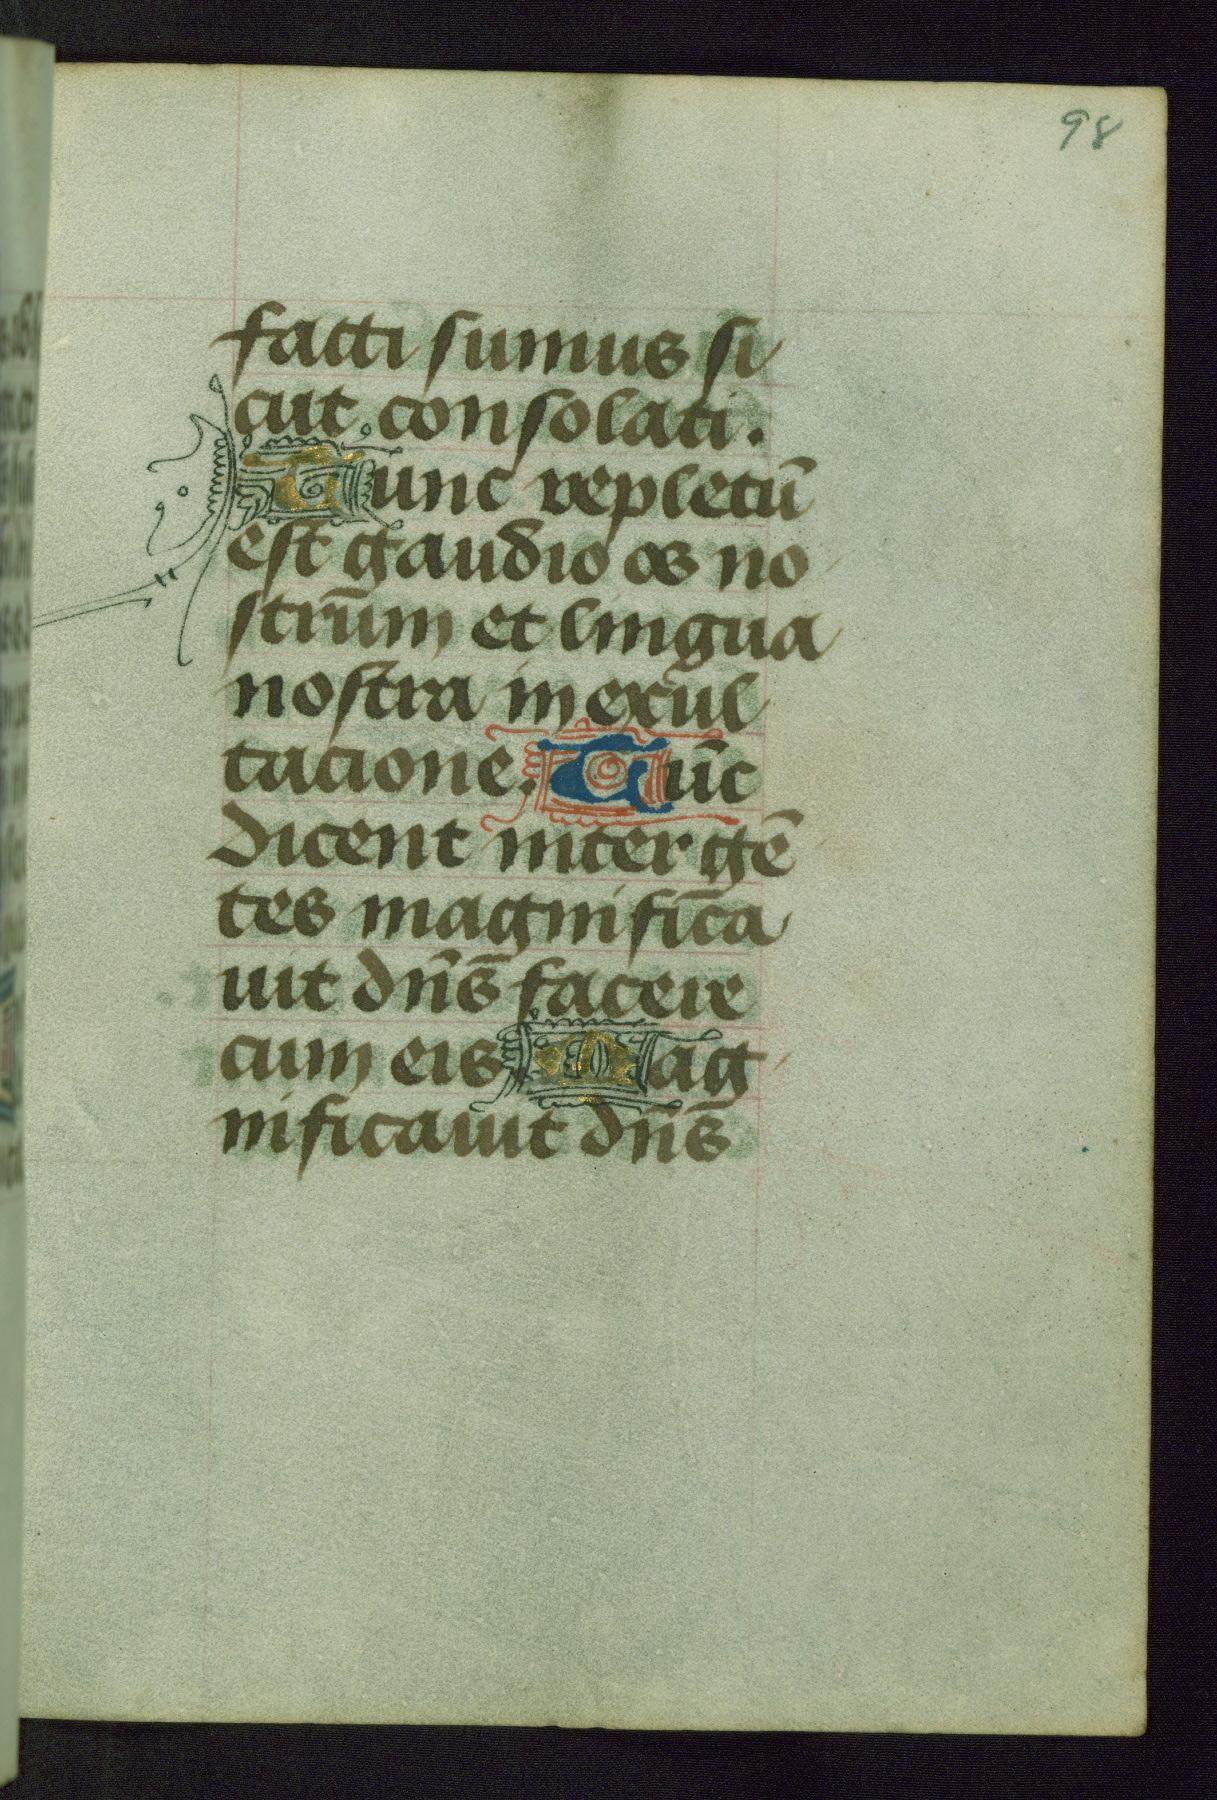 98
facti sumus si
cut consolati.
Tunc repletū
est gaudio os no
strūm et lingua
nostra in exul
tacione. Tūc
dicent inter gē
tes magnifica
uit dn̄s facere
cum eis Mag
nificauit dn̄s